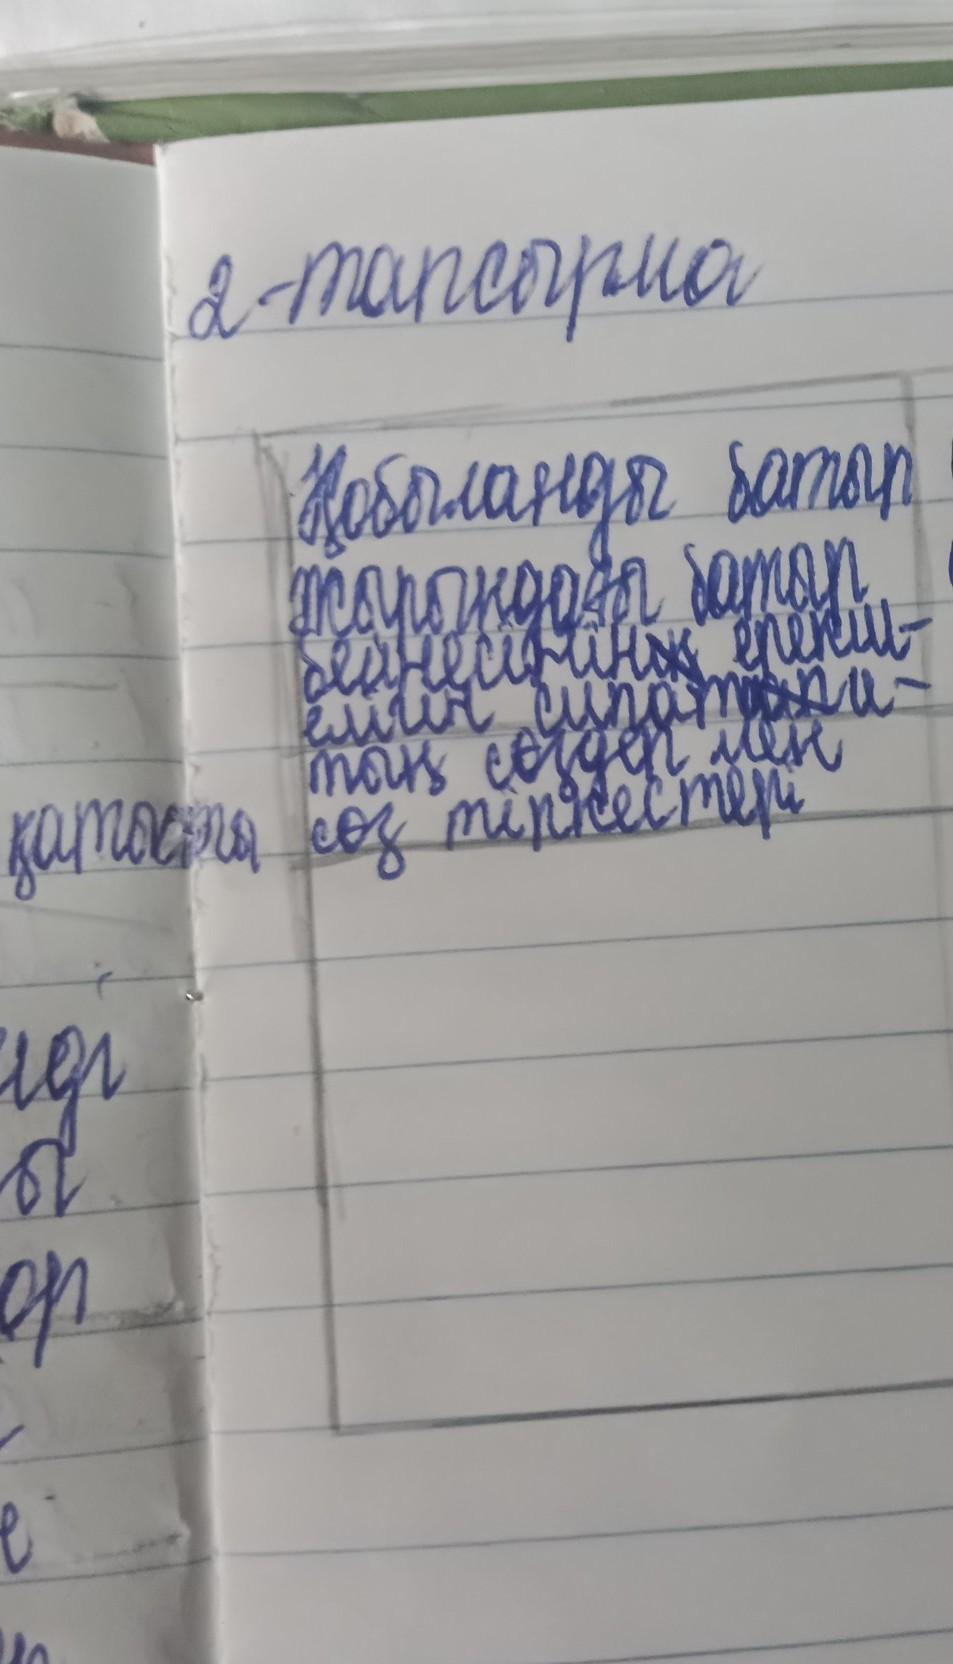 2-тапсырма
Қобыланды батыр
жырындағы батыр
бейнесінің ерекш-
елігін сипаттай-
тың сөздер мен
сөз тіркестері
қатысты